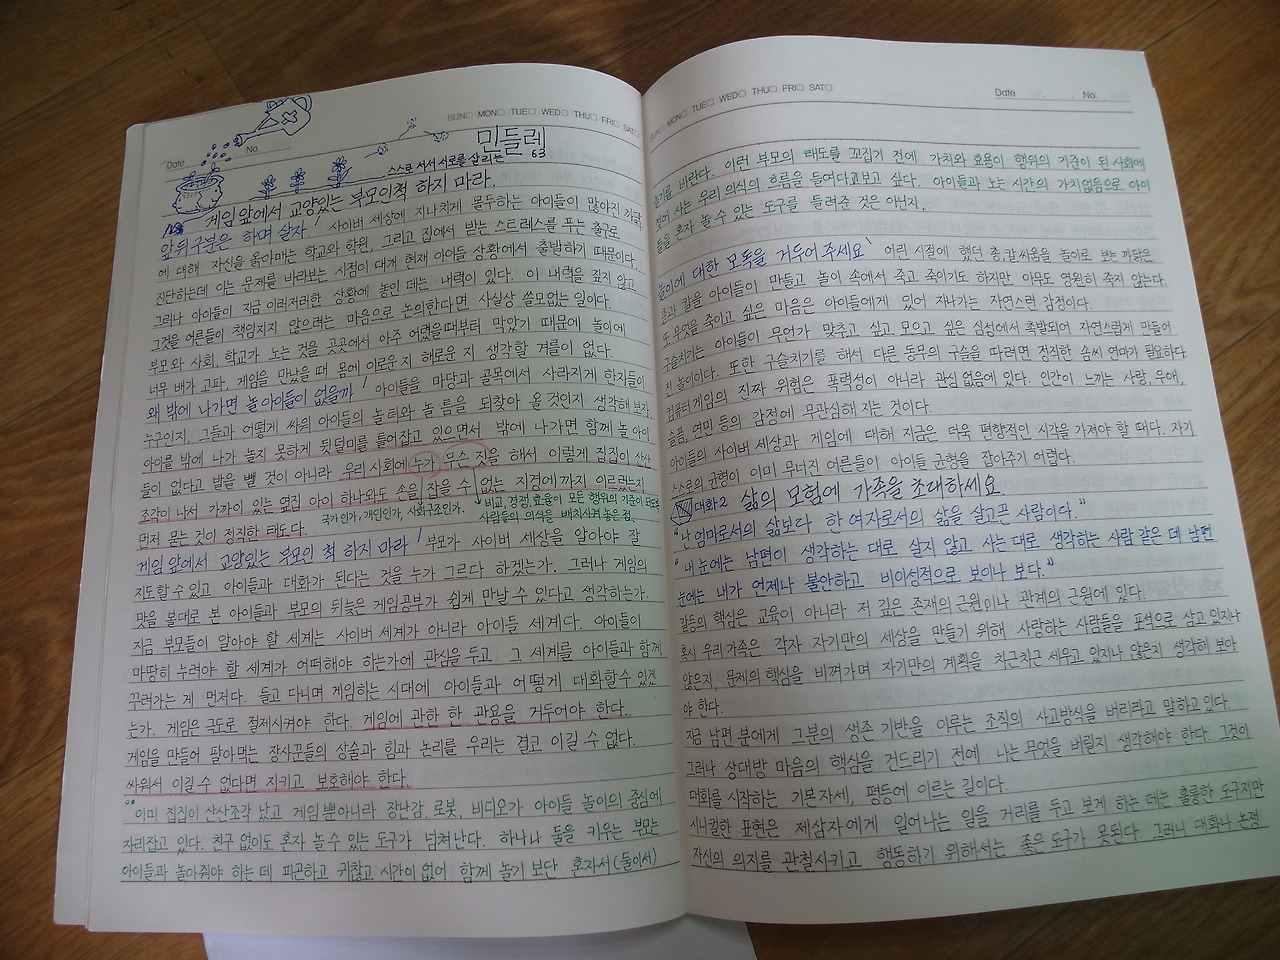 SUN□ MON□ TUE□ WED□ THU□ FRI□ SAT□
Date No.
민들레
스스로 서서 서로를 살리는 63
게임 앞에서 교양있는 부모인척 하지 마라.
앞뒤구분은 하며 살자! 사이버 세상에 지나치게 몰두하는 아이들이 많아진 까닭
에 대해 자신을 옭아매는 학교와 학원, 그리고 집에서 받는 스트레스를 푸는 출구로
진단하는데 이는 문제를 바라보는 시점이 대개 현재 아이들 상황에서 출발하기 때문이다.
그러나 아이들이 지금 이러저러한 상황에 놓인 데는 내력이 있다. 이 내력을 짚지 않고
그것을 어른들이 책임지지 않으려는 마음으로 논의한다면 사실상 쓸모없는 일이다.
부모와 사회, 학교가 노는 것을 곳곳에서 아주 어렸을때부터 막았기 때문에 놀이에
너무 배가 고파, 게임을 만났을 때 몸에 이로운지 해로운 지 생각할 겨를이 없다.
왜 밖에 나가면 놀 아이들이 없을까! 아이들을 마당과 골목에서 사라지게 한자들이
누구인지, 그들과 어떻게 싸워 아이들의 놀터와 놀 틈을 되찾아 올 것인지 생각해 보자.
아이를 밖에 나가 놀지 못하게 뒷덜미를 틀어잡고 있으면서 밖에 나가면 함께 놀 아이
들이 없다고 발을 뺄 것이 아니라 우리 사회에 누가 무슨 짓을 해서 이렇게 집집이 산산
조각이 나서 가까이 있는 옆집 아이 하나와도 손을 잡을 수 없는 지경에까지 이르렀는지
먼저 묻는 것이 정직한 태도다. 국가인가, 개인인가, 사회구조인가. 비교, 경쟁, 효율이 모든 행위의 기준이 되도록
사람들의 의식을 배치시켜놓은 점.
게임 앞에서 교양있는 부모인 척 하지 마라! 부모가 사이버 세상을 알아야 잘
지도할 수 있고 아이들과 대화가 된다는 것을 누가 그르다 하겠는가. 그러나 게임의
맛을 볼대로 본 아이들과 부모의 뒤늦은 게임공부가 쉽게 만날 수 있다고 생각하는가.
지금 부모들이 알아야 할 세계는 사이버 세계가 아니라 아이들 세계다. 아이들이
마땅히 누려야 할 세계가 어떠해야 하는가에 관심을 두고 그 세계를 아이들과 함께
꾸려가는 게 먼저다. 들고 다니며 게임하는 시대에 아이들과 어떻게 대화할수 있겠
는가. 게임은 극도로 절제시켜야 한다. 게임에 관한 한 관용을 거두어야 한다.
게임을 만들어 팔아먹는 장사꾼들의 상술과 힘과 논리를 우리는 결코 이길 수 없다.
싸워서 이길 수 없다면 지키고 보호해야 한다.
"이미 집집이 산산조각 났고 게임 뿐아니라 장난감, 로봇, 비디오가 아이들 놀이의 중심에
자리잡고 있다. 친구 없이도 혼자 놀 수 있는 도구가 넘쳐난다. 하나나 둘을 키우는 부모는
아이들과 놀아줘야 하는 데 피곤하고 귀찮고 시간이 없어 함께 놀기 보단 혼자서(둘이서)
SUN□ MON□ TUE□ WED□ THU□ FRI□ SAT□
Date . No.
놀기를 바란다. 이런 부모의 태도를 꼬집기 전에 가치와 효용이 행위의 기준이 된 사회에
젖어 사는 우리 의식의 흐름을 들여다보고 싶다. 아이들과 노는 시간의 가치없음으로 아이
들을 혼자 놀 수 있는 도구를 들려준 것은 아닌지,
놀이에 대한 모독을 거두어 주세요` 어린 시절에 했던 총,칼싸움을 놀이로 보는 까닭은
총과 칼을 아이들이 만들고 놀이 속에서 죽고 죽이기도 하지만 아무도 영원히 죽지 않는다.
또 무엇을 죽이고 싶은 마음은 아이들에게 있어 지나가는 자연스런 감정이다.
구슬치기는 아이들이 무언가 맞추고 싶고 모으고 싶은 심성에서 촉발되어 자연스럽게 만들어
진 놀이이다. 또한 구슬치기를 해서 다른 동무의 구슬을 따려면 정직한 솜씨 연마가 필요하다.
컴퓨터 게임의 진짜 위험은 폭력성이 아니라 관심 없음에 있다. 인간이 느끼는 사랑, 우애,
슬픔, 연민 등의 감정에 무관심해 지는 것이다.
아이들의 사이버 세상과 게임에 대해 지금은 더욱 편향적인 시각을 가져야 할 때다. 자기
스스로의 균형이 이미 무너진 어른들이 아이들 균형을 잡아주기 어렵다.
대화2 삶의 모험에 가족을 초대하세요
"난 엄마로서의 삶보다 한 여자로서의 삶을 살고픈 사람이다."
"내 눈에는 남편이 생각하는 대로 살지 않고 사는 대로 생각하는 사람 같은 데 남편
눈에는 내가 언제나 불안하고 비이성적으로 보이나 보다."
갈등의 핵심은 교육이 아니라 저 깊은 존재의 근원이나 관계의 근원에 있다.
혹시 우리 가족은 각자 자기만의 세상을 만들기 위해 사랑하는 사람들을 표적으로 삼고 있지나
않은지, 문제의 핵심을 비껴가며 자기만의 계획을 차근차근 세우고 있지나 않은지 생각해 보아
야 한다.
지금 남편 분에게 그분의 생존 기반을 이루는 조직의 사고방식을 버리라고 말하고있다.
그러나 상대방 마음의 핵심을 건드리기 전에 나는 무엇을 버릴지 생각해야 한다. 그것이
대화를 시작하는 기본자세, 평등에 이르는 길이다.
시니컬한 표현은 제삼자에게 일어나는 일을 거리를 두고 보게 하는 데는 훌륭한 도구지만
자신의 의지를 관철시키고 행동하기 위해서는 좋은 도구가 못된다. 그러니 대화나 논쟁